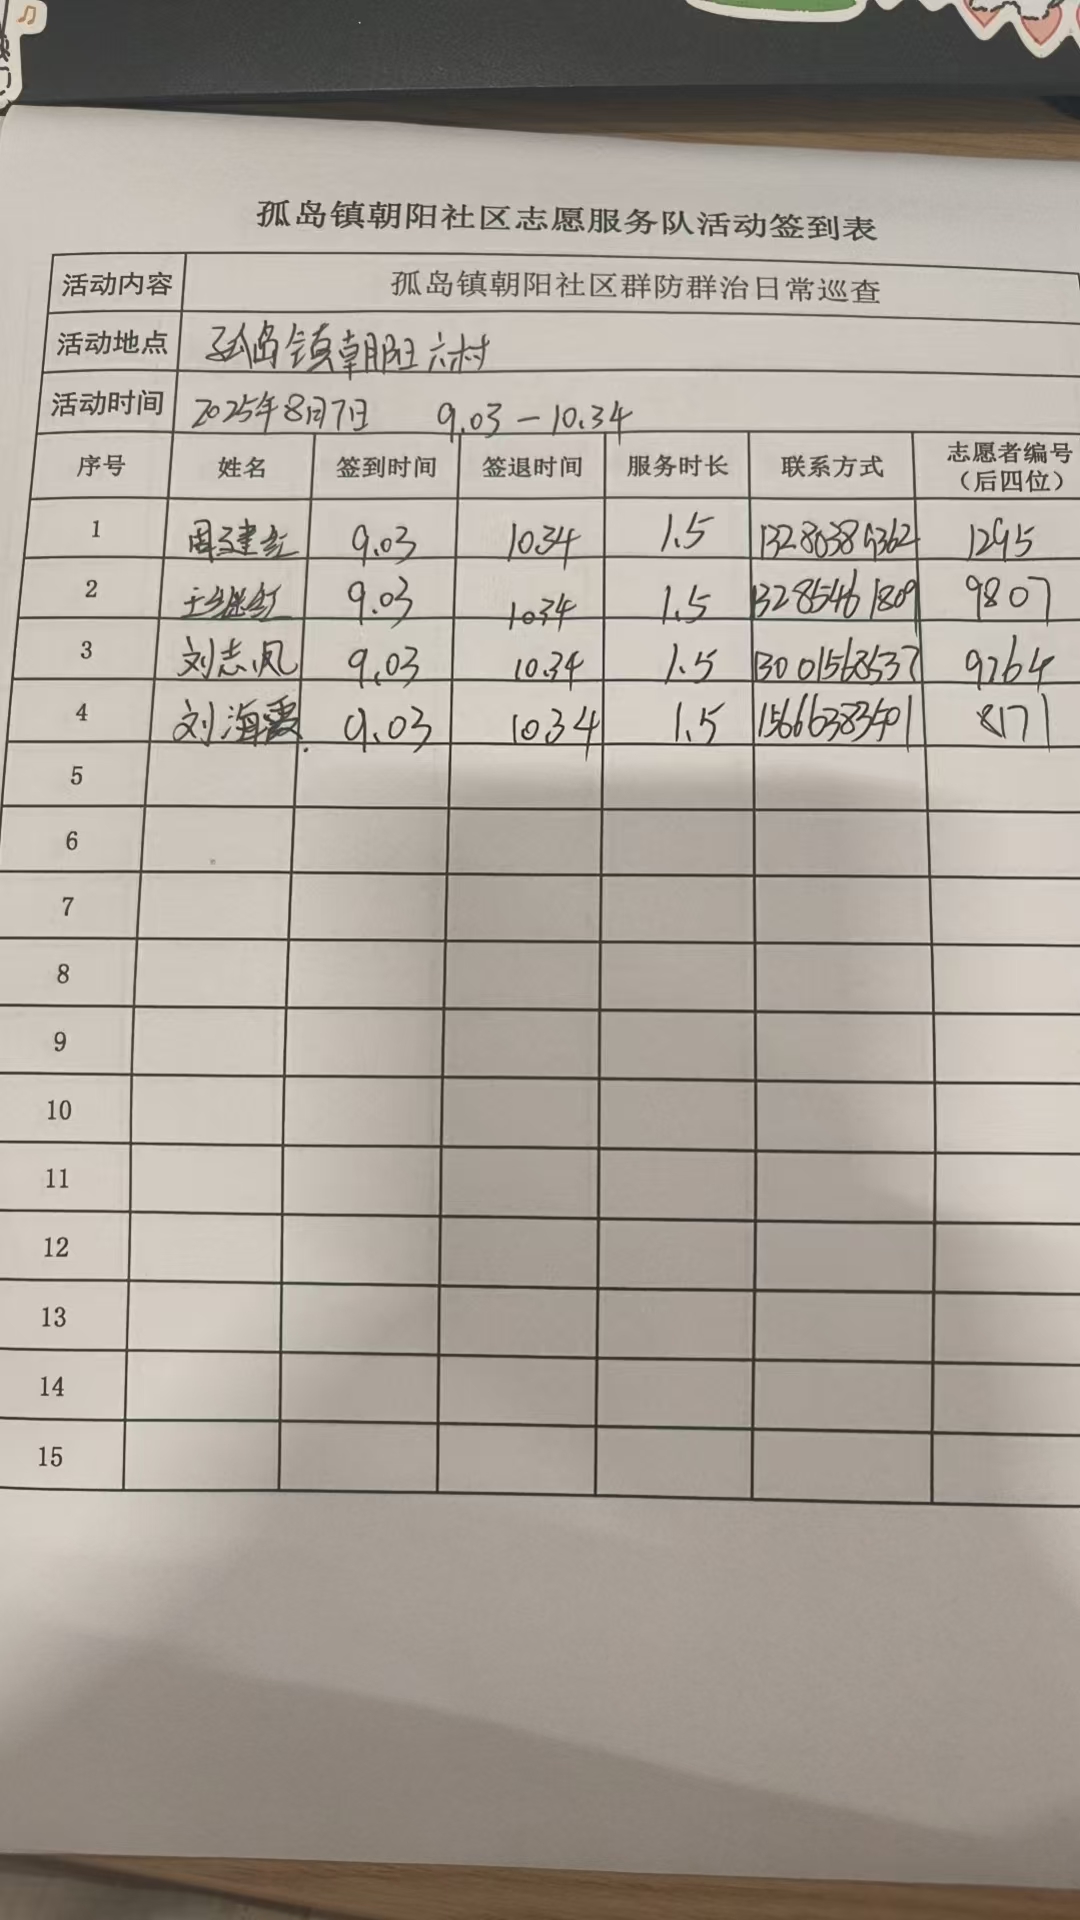 孤岛镇朝阳社区志愿服务队活动签到表
活动内容 孤岛镇朝阳社区群防群治日常巡查
活动地点 孤岛镇朝阳六村
活动时间 2025年8月7日 9.03—10.34
序号 姓名 签到时间 签退时间 服务时长 联系方式 志愿者编号
（后四位）
1 周建红 9.03 10.34 1.5 1295
2 王继红 9.03 10.34 1.5 13285461809 9807
3 刘志凤 9.03 10.34 1.5 13001568537 9264
4 刘海霞 9.03 10.34 1.5 15666383401 8171
5
6
7
8
9
10
11
12
13
14
15